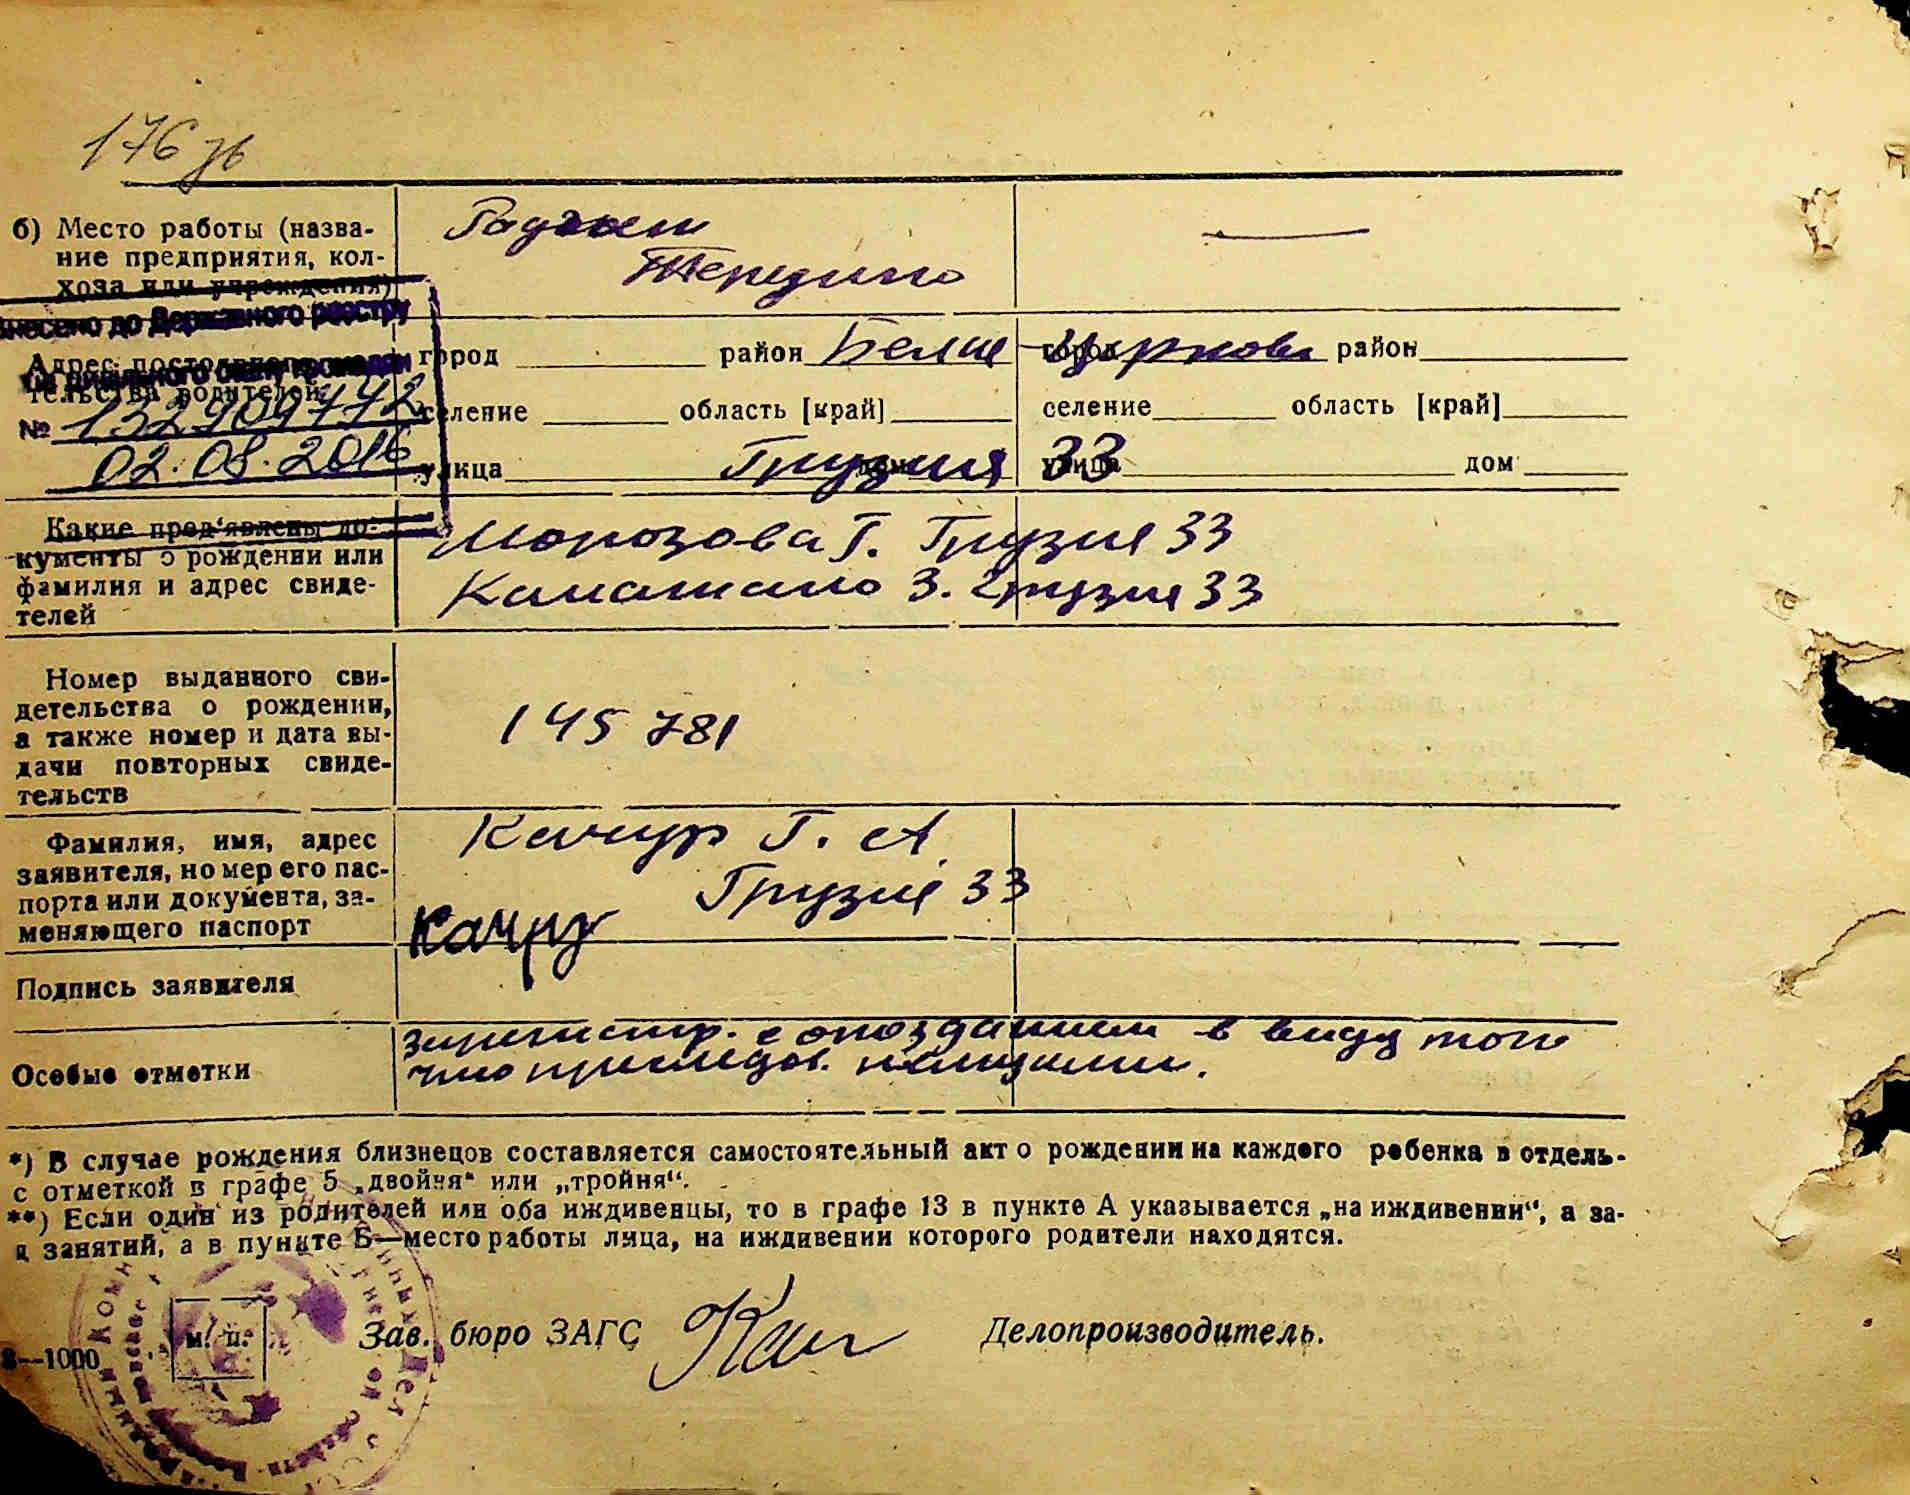 176 зв
б) Место работы (назва-
ние предприятия, кол-
хоза или учреждения)
Внесено до Державного реєстру
актів цивільного стану громадян
№ 1329109772
02.08.2016
Адрес постоянного
тельства родителей
город район Белая Церковь
селение область [край]
улица Грузия дом 33
город район
селение область [край]
улица дом
Какие пред'явлены до-
кументы о рождении или
фамилия и адрес свиде-
телей
Морозова Г. Грузия 33
З. Грузия 33
Номер выданного сви-
детельства о рождении,
а также номер и дата вы-
дачи повторных свиде-
тельств
145 781
Фамилия, имя, адрес
заявителя, номер его пас-
порта или документа, за-
меняющего паспорт
Качур Г. А.
Грузия 33
Подпись заявителя
Качур
Особые отметки
зарегистр. с опозданием в виду того
что
*) В случае рождения близнецов составляется самостоятельный акт о рождении на каждого ребенка в отдель-
с отметкой в графе 5 „двойня" или „тройня".
**) Если один из родителей или оба иждивенцы, то в графе 13 в пункте А указывается „на иждивении", а за-
д занятий, а в пункте Б—место работы лица, на иждивении которого родители находятся.
м. п.
Зав. бюро ЗАГС
Делопроизводитель.
8—1000